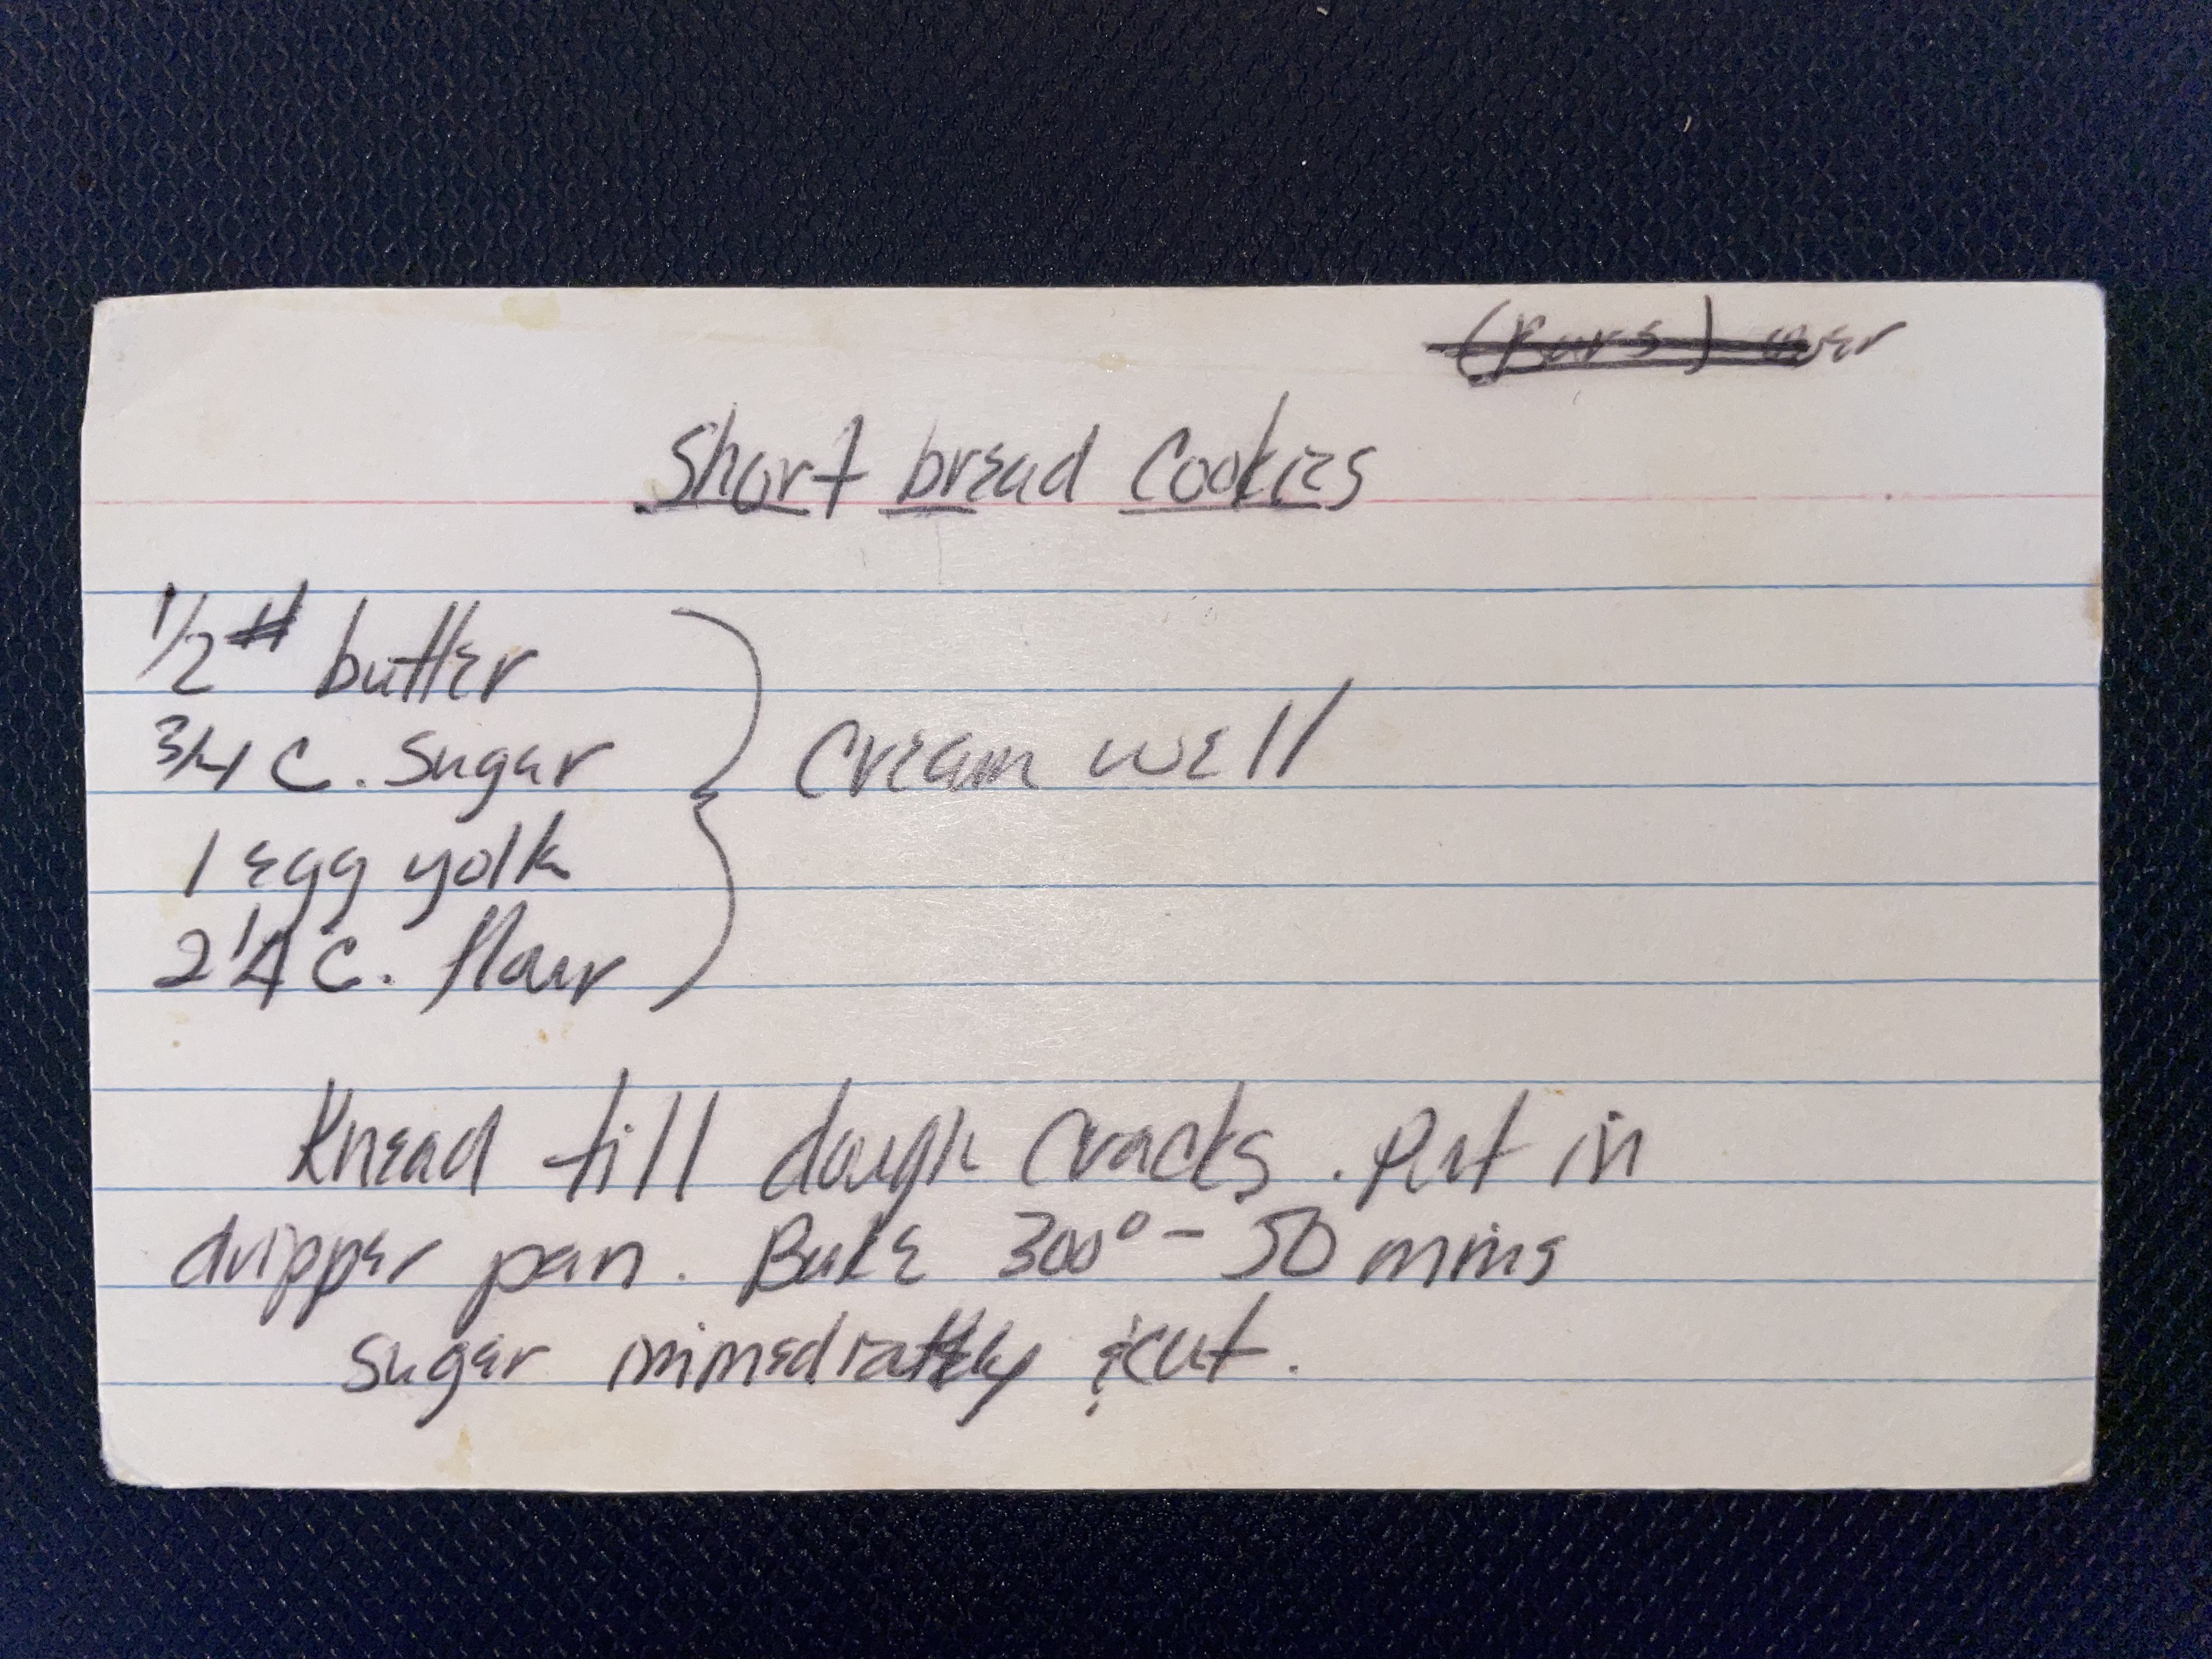 (Bars) over
Short bread Cookies
1/2 # butter
3/4 C. sugar
1 egg yolk
2 1/4 C. flour
Cream well
Knead till dough cracks. Put in
dripper pan. Bake 300° - 50 mins
sugar immediately & cut.